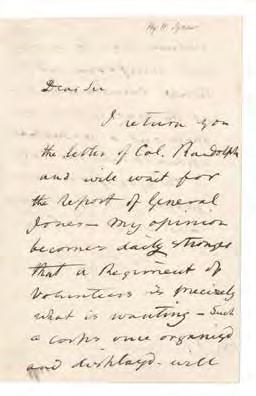 Dear Sir
I return you
the letter of Col. Randolph
and will wait for
the report of General
Jones – My opinion
becomes daily stronger
that a Regiment of
Volunteers is precisely
what is wanting – Such
a corps once organised
and displayd – will